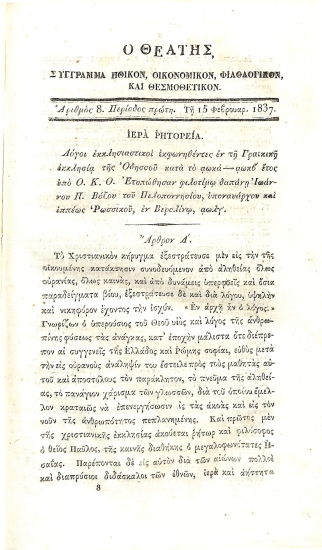 Ο ΘΕΑΤΗΣ,
ΣΥΓΓΡΑΜΜΑ ΗΘΙΚΟΝ, ΟΙΚΟΝΟΜΙΚΟΝ, ΦΙΛΟΛΟΓΙΚΟΝ,
ΚΑΙ ΘΕΣΜΟΘΕΤΙΚΟΝ.
Ἀριθμὸς 8. Περίοδος πρώτη. Τῇ 15 Φεβρουαρ. 1837.
ΙΕΡΑ ΡΗΤΟΡΕΙΑ.
Λόγοι ἐκκλησιαστικοὶ ἐκφωνηθέντες ἐν τῇ Γραικικῇ
ἐκκλησίᾳ τῆς Ὀδησσοῦ κατὰ τὸ αωκά—αωκβ ἔτος
ὑπὸ Ο. Κ. Ο. Ἐτυπώθησαν φιλοτίμῳ δαπάνῃ Ἰωάν-
νου Π. Βόζου τοῦ Πελοποννησίου, ὑποναυάρχου καὶ
ἱππέως Ῥωσσικοῦ, ἐν Βερολίνῳ,
Ἄρθρον Α΄.
Τὸ Χριστιανικὸν κήρυγμα ἐξεστράτευσε μὲν εἰς τὴν τῆς
οἰκουμένης κατάκτησιν συνοδευόμενον ἀπὸ ἀληθείας ὅλως
οὐρανίας, ὅλως καινάς, καὶ ἀπὸ δυνάμεις ὑπερηθεῖς καὶ ὅσια
παραδείγματα βίου, ἐξεστράτευσε δὲ καὶ διὰ λόγου, ὑψηλὴν
καὶ νικηφόρον ἔχοντος τὴν ἰσχύν. »Ἐν ἀρχῇ ἦν ὁ λόγος.«
Γνωρίζων ὁ ὑπερούσιος τοῦ Θεοῦ υἱὸς καὶ λόγος τῆς ἀνθρω-
πίνης φύσεως τὰς ἀνάγκας, κατ' ἐποχὴν μάλιστα ὅτε διέπρε-
πον αἱ συγγενεῖς τῆς Ἑλλάδος καὶ Ῥώμης σοφίαι, εὐθὺς μετὰ
τὴν εἰς οὐρανοὺς ἀνάληψίν του ἔστειλε πρὸς τοὺς μαθητὰς αὐ-
τοῦ καὶ ἀποστόλους τὸν παράκλητον, τὸ πνεῦμα τῆς ἀληθεί-
ας, τὸ πανάγιον χάρισμα τῶν γλωσσῶν, διὰ τοῦ ὁποίου ἔμελ-
λον κραταιῶς νὰ ἐπενεργήσωσιν εἰς τὰς ἀκοὰς καὶ εἰς τὸν
νοῦν τῆς ἀνθρωπότητος πεπλανημένης. Καὶ πρῶτος μὲν
τῆς χριστιανικῆς ἐκκλησίας ἀκούεται ῥήτωρ καὶ φιλόσοφος
ὁ θεῖος Παῦλος, τῆς καινῆς διαθήκης ὁ μεγαλοφωνότατος Ἡ-
σαΐας. Παρέπονται δὲ εἰς αὐτὸν διὰ τῶν αἰώνων πολλοὶ
καὶ διαπρύσιοι διδάσκαλοι τῶν ἐθνῶν, ἱερὰ καὶ ἀήττητα
8